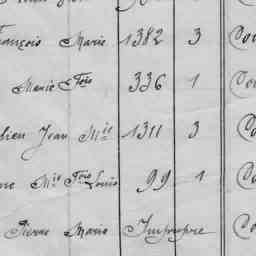 François Marie 1382 3 Co
Marie Fois 336 1 Co
Jean Mie 1311 3 Co
Mie Fois Louis 99 1 Co
Pierre Marie Impropre Co